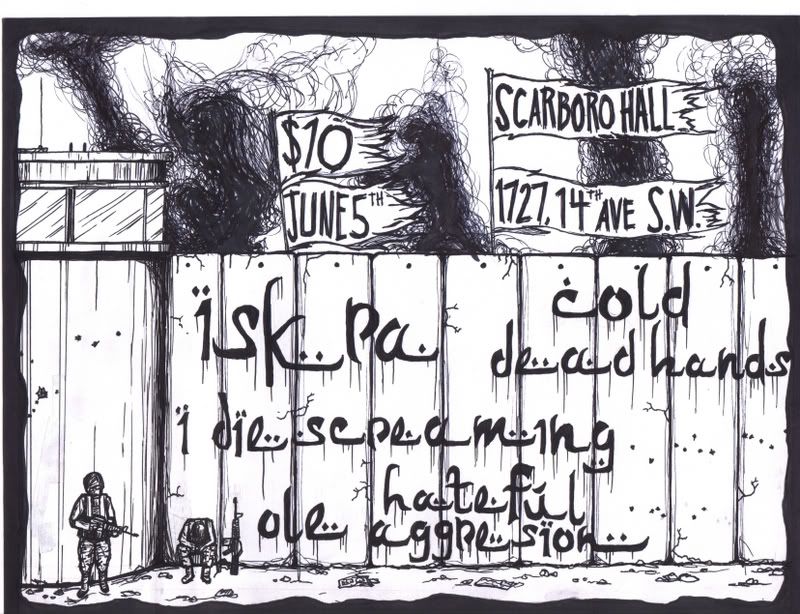 $10
JUNE 5TH
SCARBORO HALL
1727. 14TH AVE S.W.
ïskra
cold
dead hands
ï dïe screaming
ole
hateful
aggresïon